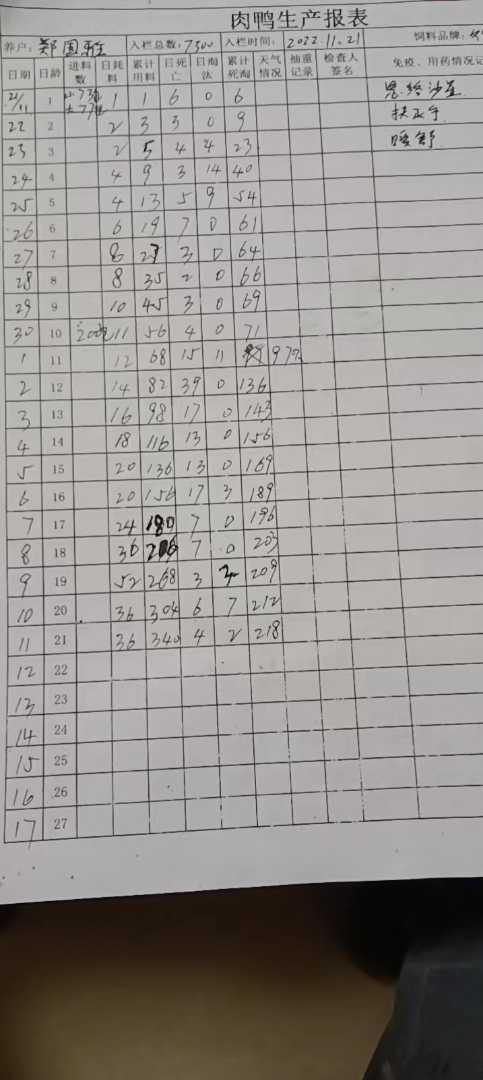 肉鸭生产报表
养户: 郑国雅 入栏总数: 7300 入栏时间: 2022.11.21 饲料品牌:
日期 日龄 进料数 日耗料 累计用料 日死亡 日淘汰 累计死淘 天气情况 抽重记录 检查人签名 免疫、用药情况记
21/11 1 1 1 6 0 6 恩诺沙星
22 2 2 3 3 0 9 扶正宁
23 3 2 5 4 4 23
24 4 4 9 3 14 40
25 5 4 13 5 9 54
26 6 6 19 7 0 61
27 7 8 27 3 0 64
28 8 8 35 2 0 66
29 9 10 45 3 0 69
30 10 11 56 4 0 71
1 11 12 68 15 11 97
2 12 14 82 39 0 136
3 13 16 98 17 0 143
4 14 18 116 13 0 156
5 15 20 136 13 0 169
6 16 20 156 17 3 189
7 17 24 180 7 0 196
8 18 36 7 0 203
9 19 52 268 3 3 209
10 20 36 304 6 7 212
11 21 36 340 4 2 218
12 22
13 23
14 24
15 25
16 26
17 27